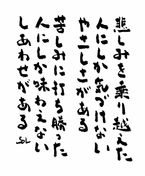 悲しみを乗り越えた
人にしか気づけない
やさしさがある
苦しみに打ち勝った
人にしか味わえない
しあわせがある